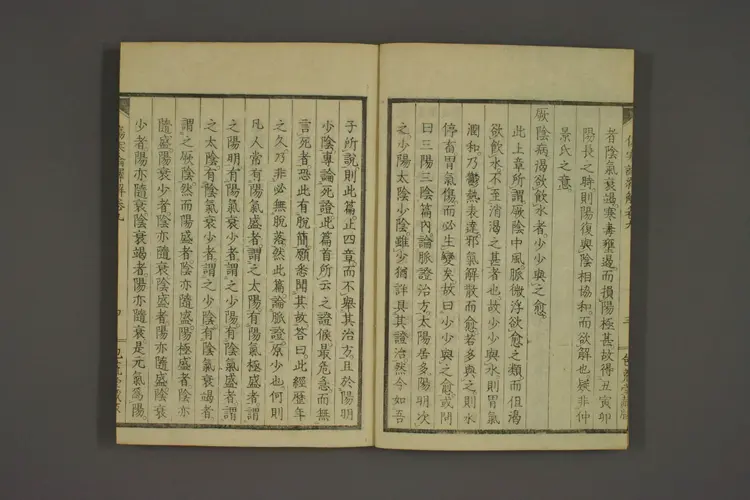 者陰氣衰竭寒毒壅邊而損陽極甚故得丑寅卯
陽長之時則陽復與陰相協和而欲解也疑非仲
景氏之意
厥陰病渴欲飲水者少少與之愈
此上章所謂厥陰中風脈微浮欲愈之類而但渴
欲飲水不至消渴之甚者也故少少與水則胃氣
潤和乃鬱熱表達邪氣解散而愈若多與之則水
停畜胃氣傷而必生變矣故曰少少與之愈或問
曰三陽三陰篇内論脈證治方太陽居多陽明次
之少陽太陰少陰雖少猶詳具其證治然今如吾
子所說則此篇止四章而不舉其治方且於陽明
少陰專論死證此篇首所云之證候最危急而無
言死者恐此有脫簡願悉聞其故答曰此經歷年
之久乃非必無脫落然此篇論脈證原少也何則
凡人常有陽氣盛者謂之太陽有陽氣極盛者謂
之陽明有陽氣衰少者謂之少陽有陰氣盛者謂
之太陰有陰氣衰少者謂之少陰有陰氣衰竭者
謂之厥陰然而陽盛者陰亦隨盛陽極盛者陰亦
隨盛陽衰少者陰亦隨衰陰盛者陽亦隨盛陰衰
少者陽亦隨衰陰衰竭者陽亦隨衰是元氣爲陽